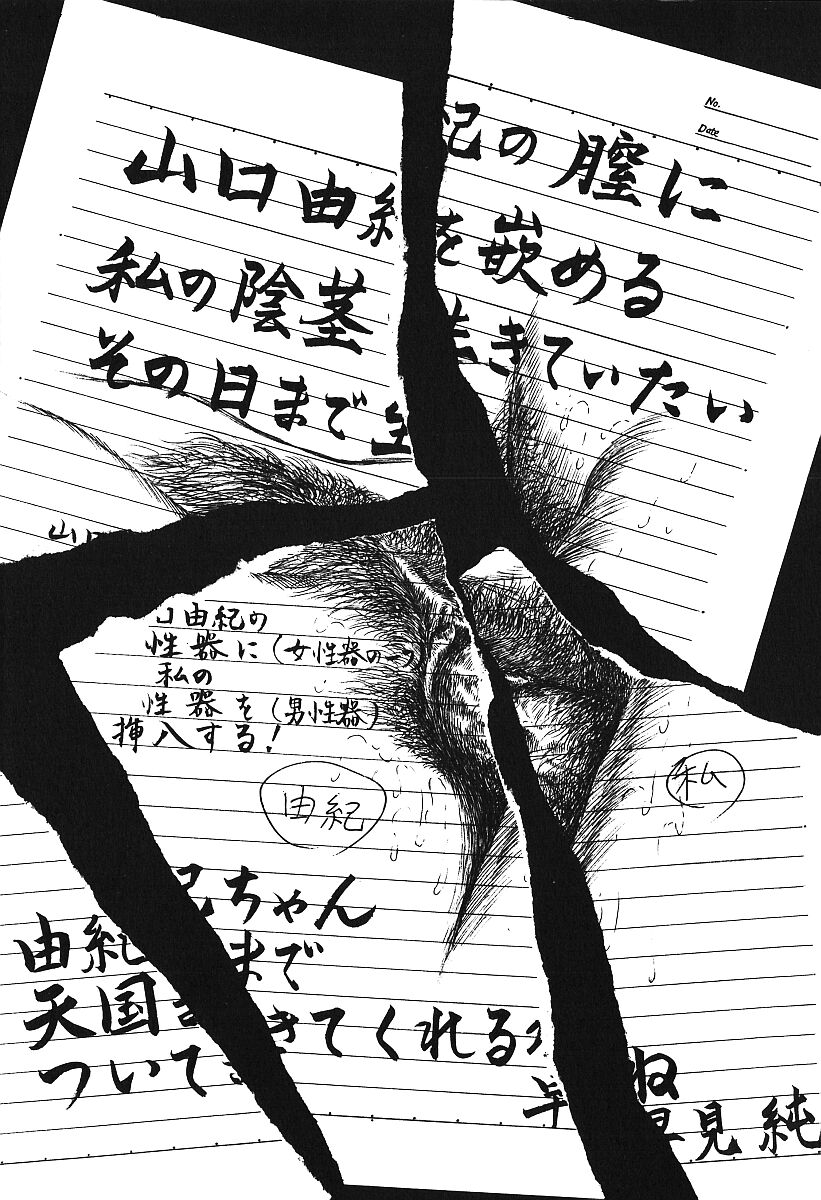 No.
Date
山口由紀の膣に
私の陰茎を嵌める
その日まで生きていたい
山口
口由紀の
性器に(女性器の一つ
私の
性器を(男性器)
挿入する!
由紀
私
紀ちゃん
由紀 まで
天国ま
ついてきてくれる
ね
早見純